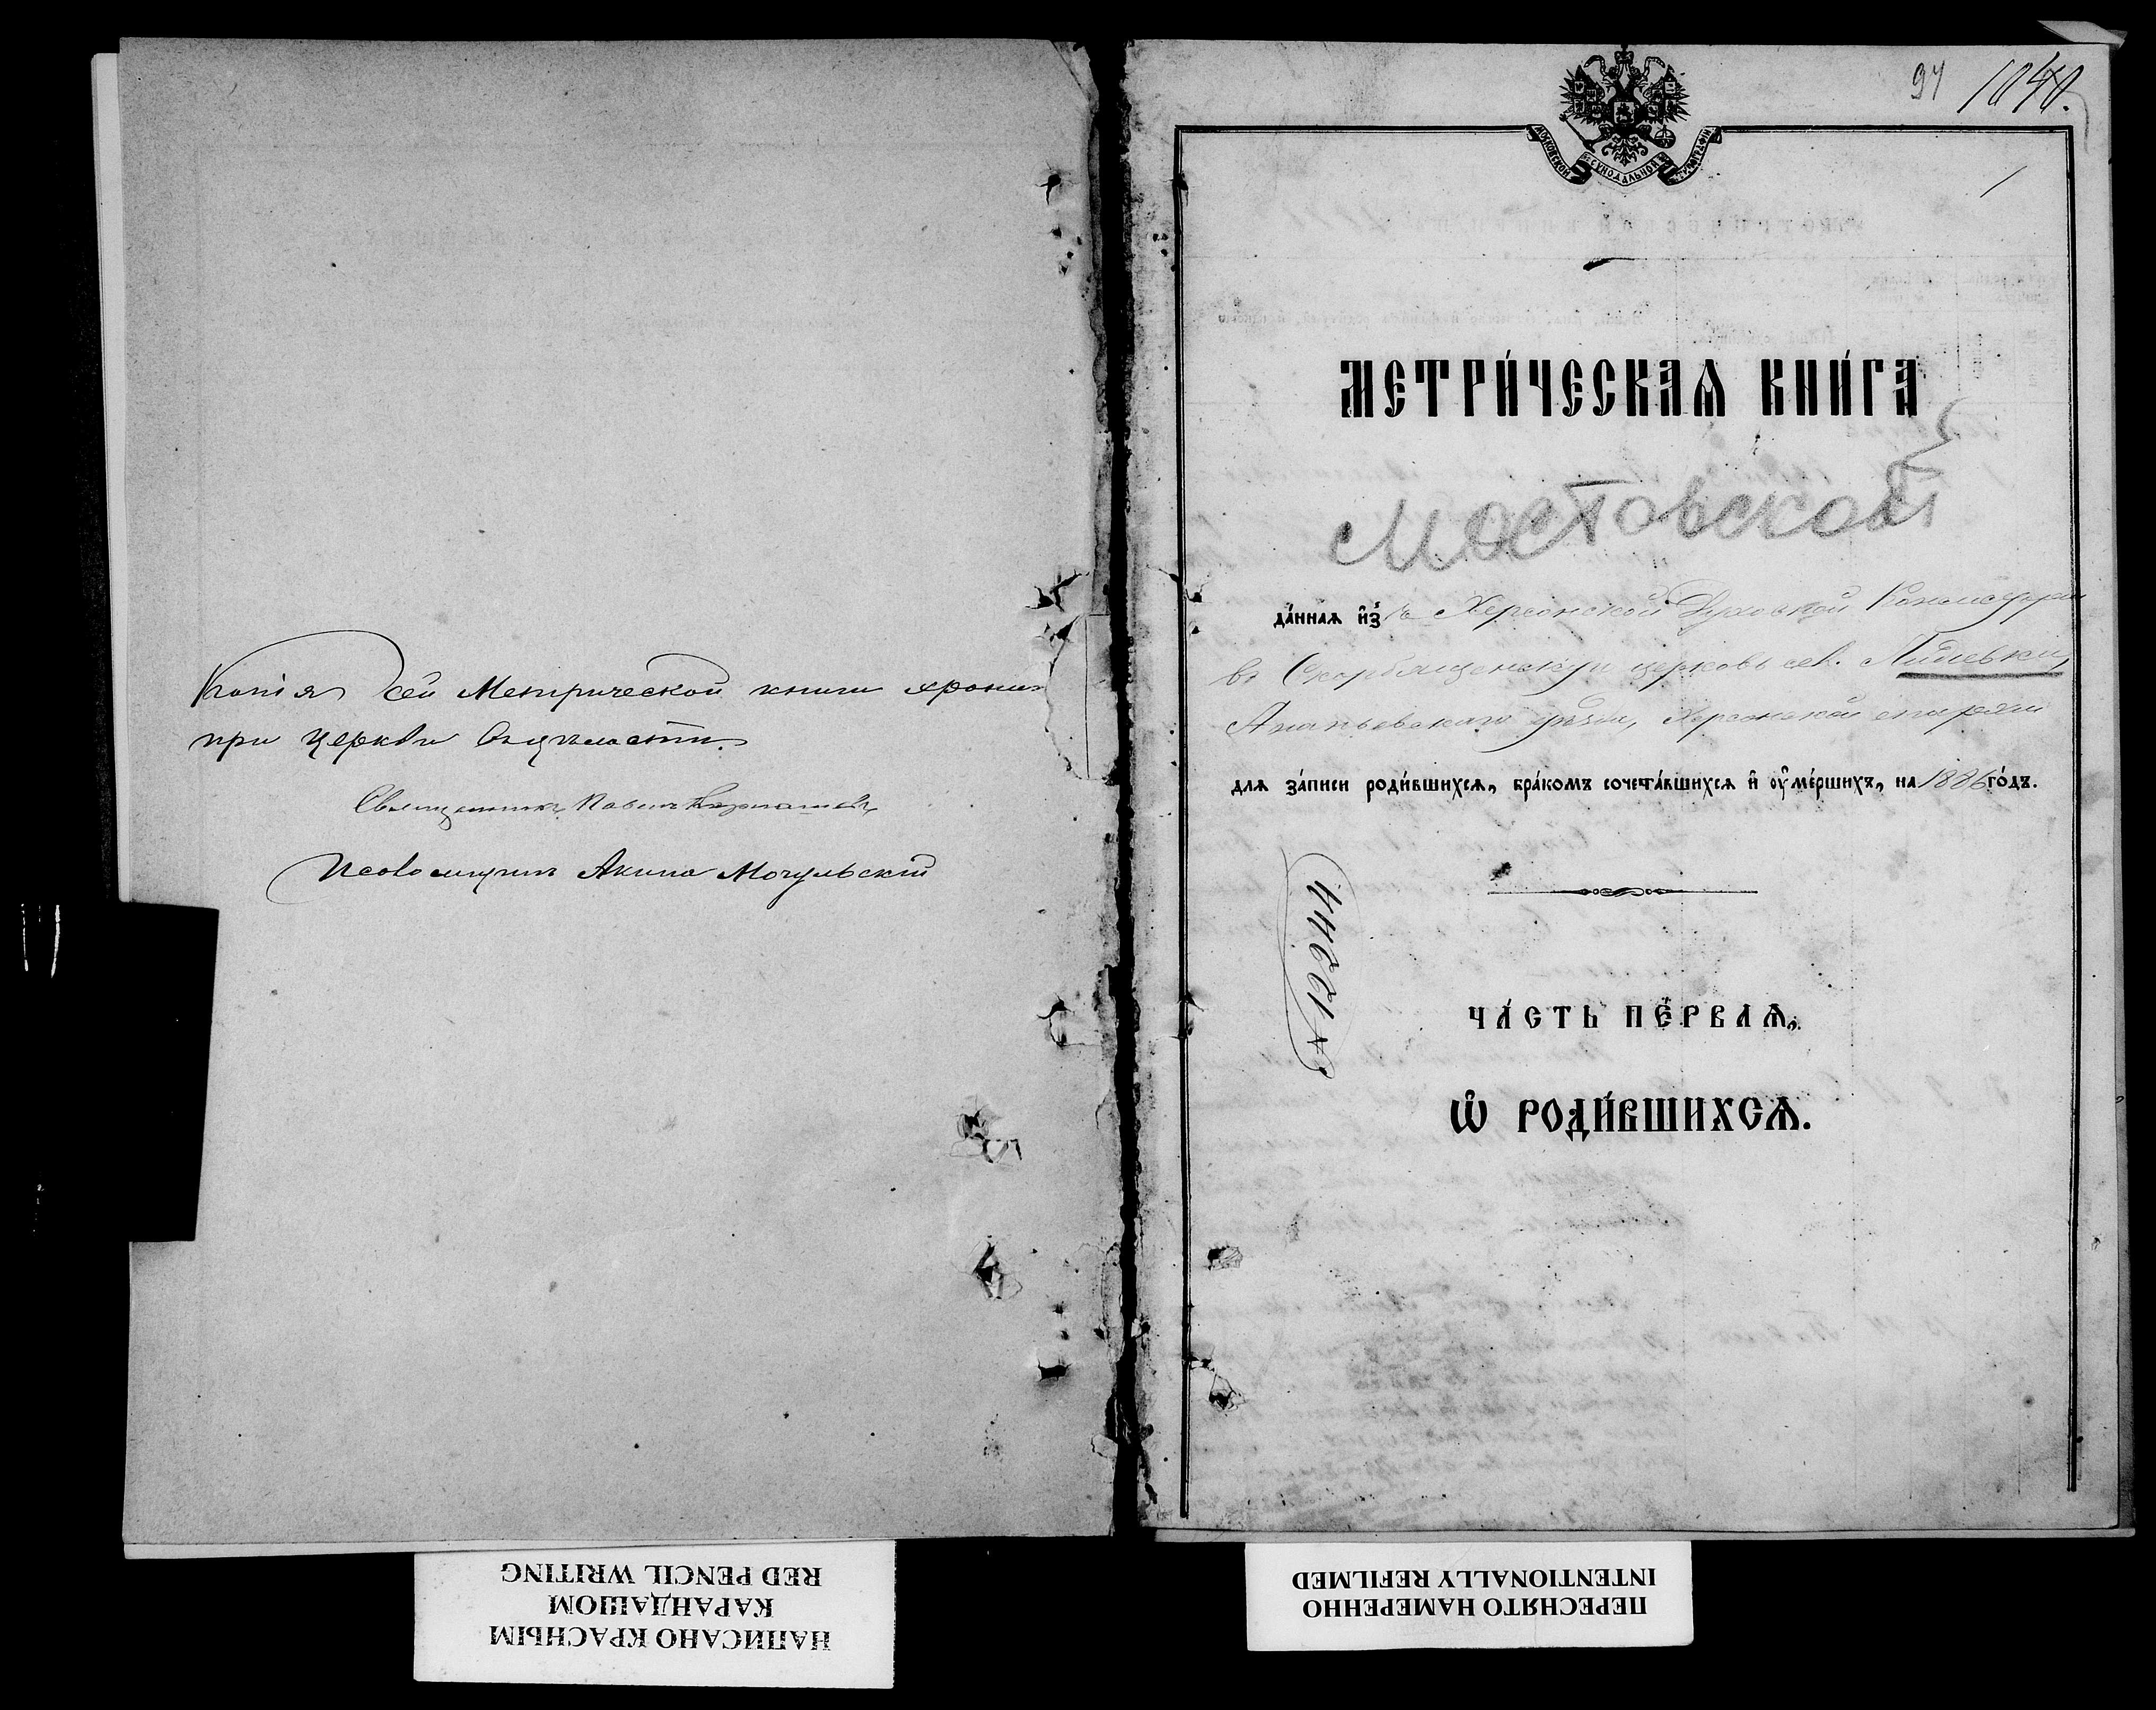 Копія сей Метрической книги храни
при церкви въ цѣлости.
Священникъ Павелъ
Псаломщикъ Акила Мочульскій
94 1040.
1
МОСКОВСКОЙ СѴНОДАЛЬНОЙ ТИПОГРАФІИ
МЕТРИ́ЧЕСКАѦ КНИ́ГА
Мостовской
да́ннаѧ и҆з̾ Херсонской Духовной Консисторіи
въ Скорбященскую церковь сел.
Ананьевскаго уѣзда, Херсонской епархіи
для за́писи роди́вшихсѧ, бра́комъ сочета́вшихсѧ и҆ ѹ҆ме́ршихъ, на 1886 го́дъ.
44221
ЧА́СТЬ ПЕ́РВАѦ,
Ѡ҆ РОДИ́ВШИХСѦ.
НАПИСАНО КРАСНЫМ
КАРАНДАШОМ
RED PENCIL WRITING
ПЕРЕСНЯТО НАМЕРЕННО
INTENTIONALLY REFILMED